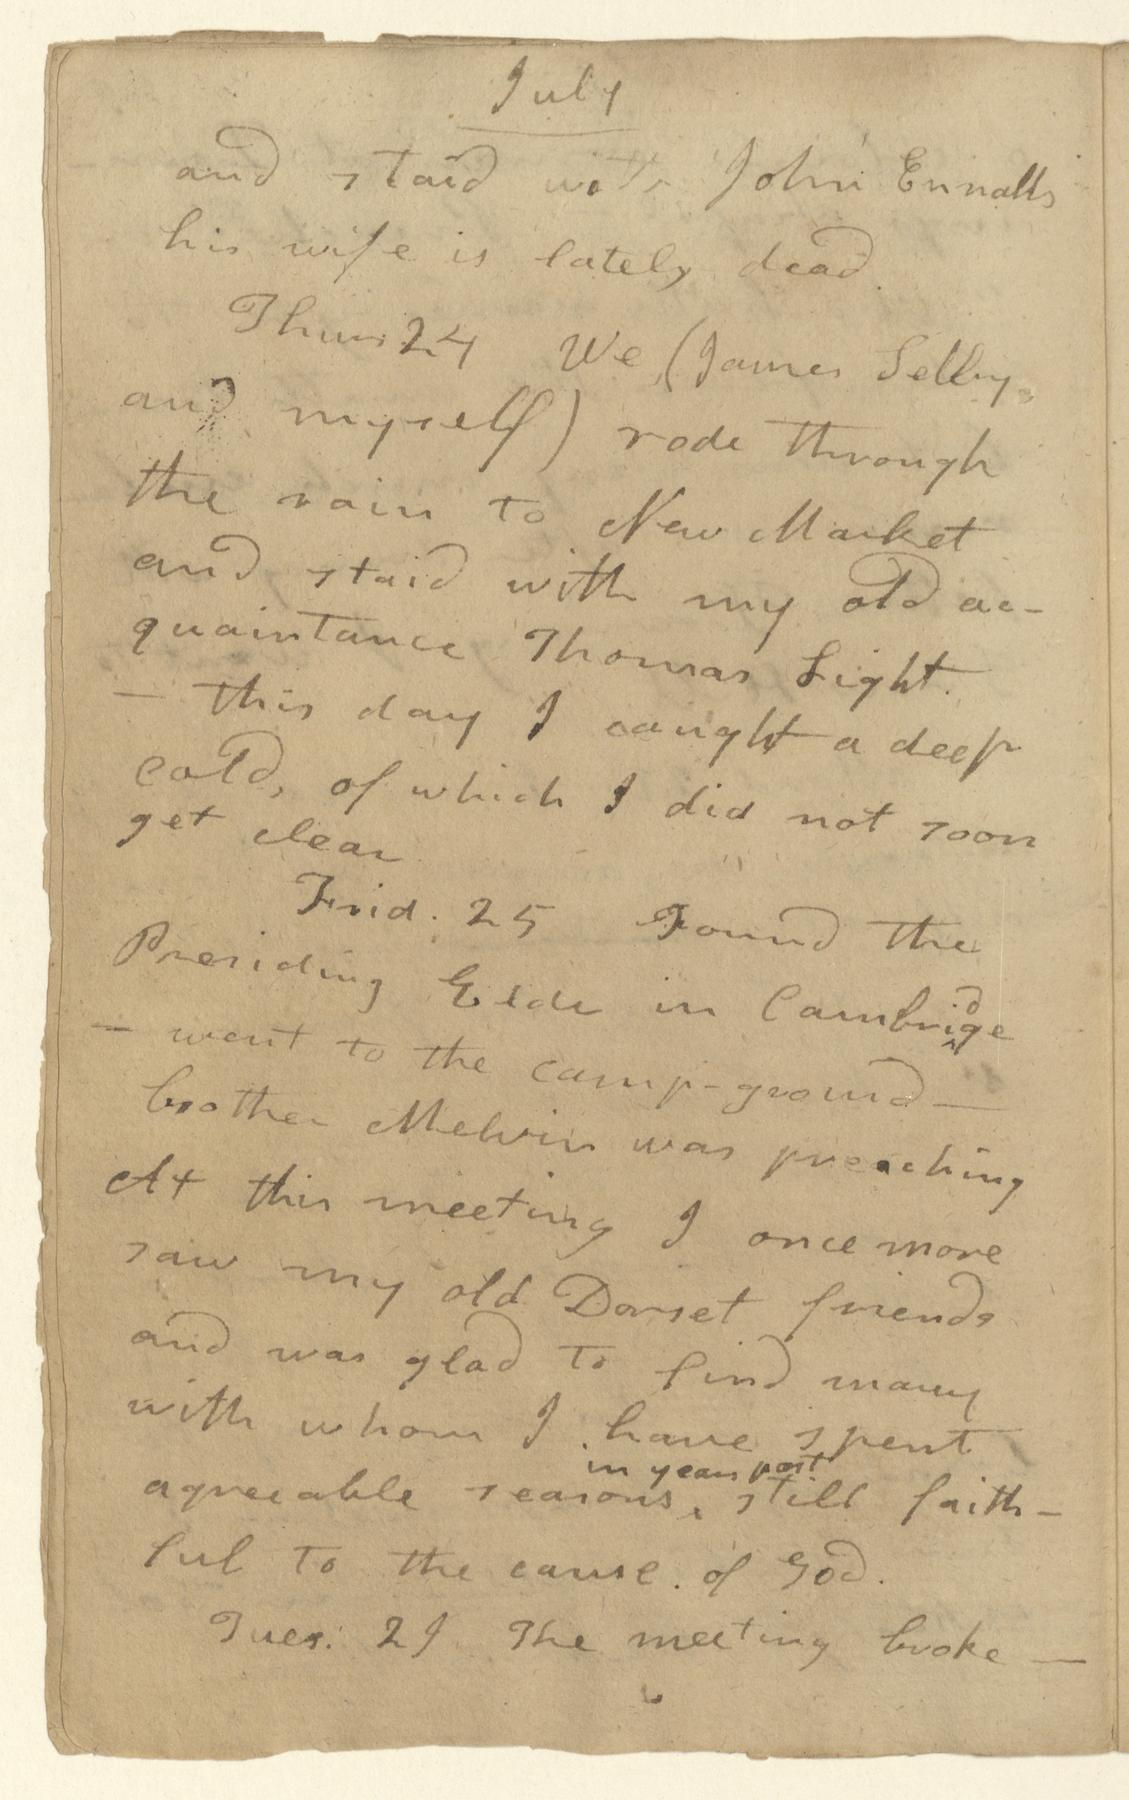 July
and staid with John Ennalls
his wife is lately dead.
Thurs 24 We (James Selby,
and myself) rode through
the rain to New Market
and staid with my old ac-
quaintance Thomas Light.
— this day I caught a deep
cold, of which I did not soon
get clear
Frid. 25 Found the
Presiding Elder in Cambridge
— went to the camp-ground —
brother Melvin was preaching
At this meeting I once more
saw my old Dorset friends
and was glad to find many
with whom I have spent
in years past
agreeable seasons, still faith-
ful to the cause of God.
Tues. 29 The meeting broke —